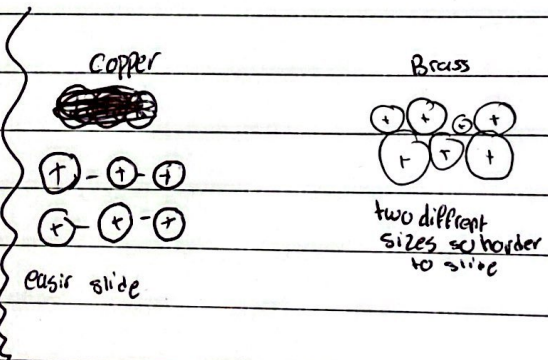 Copper
+ - + - +
+ - + - +
easir slide
Brass
+ + + +
+ + +
two diffrent
sizes so harder
to slide